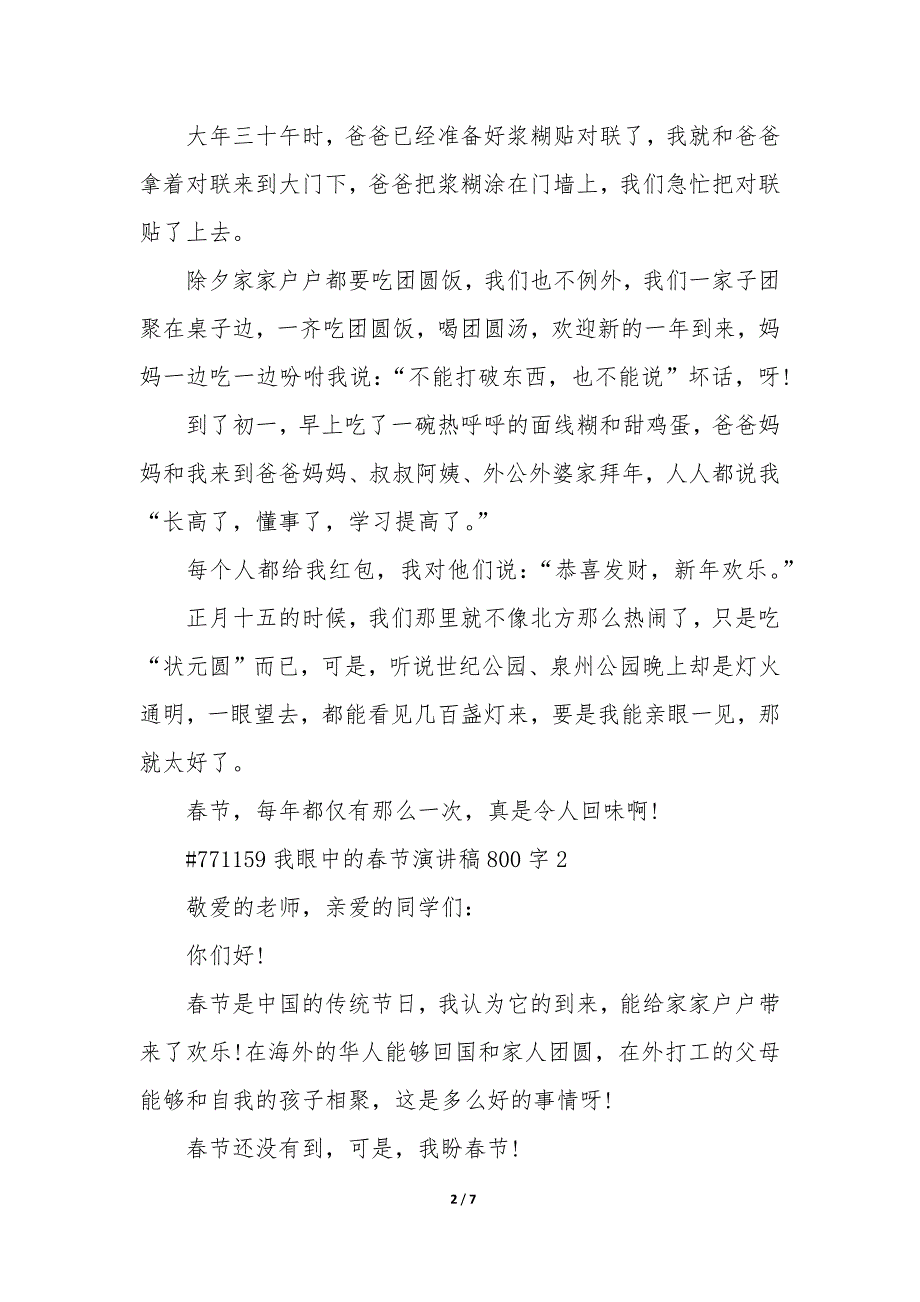 大年三十午时，爸爸已经准备好浆糊贴对联了，我就和爸爸
拿着对联来到大门下，爸爸把浆糊涂在门墙上，我们急忙把对联
贴了上去。
除夕家家户户都要吃团圆饭，我们也不例外，我们一家子团
聚在桌子边，一齐吃团圆饭，喝团圆汤，欢迎新的一年到来，妈
妈一边吃一边吩咐我说：“不能打破东西，也不能说”坏话，呀!
到了初一，早上吃了一碗热呼呼的面线糊和甜鸡蛋，爸爸妈
妈和我来到爸爸妈妈、叔叔阿姨、外公外婆家拜年，人人都说我
“长高了，懂事了，学习提高了。”
每个人都给我红包，我对他们说：“恭喜发财，新年欢乐。”
正月十五的时候，我们那里就不像北方那么热闹了，只是吃
“状元圆”而已，可是，听说世纪公园、泉州公园晚上却是灯火
通明，一眼望去，都能看见几百盏灯来，要是我能亲眼一见，那
就太好了。
春节，每年都仅有那么一次，真是令人回味啊!
#771159 我眼中的春节演讲稿 800 字 2
敬爱的老师，亲爱的同学们：
你们好!
春节是中国的传统节日，我认为它的到来，能给家家户户带
来了欢乐!在海外的华人能够回国和家人团圆，在外打工的父母
能够和自我的孩子相聚，这是多么好的事情呀!
春节还没有到，可是，我盼春节!
2 / 7